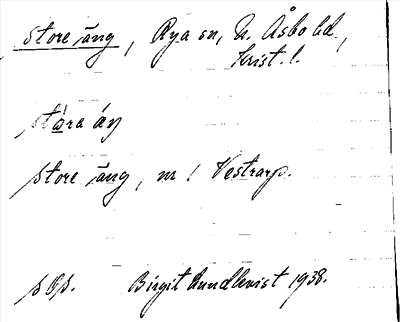 Store äng, Rya sn, N. Åsbo hd,
Krist. l.
stǫ́ra áŋ
Store äng, nr 1 Vestrarp.
Birgit Lundkvist 1938.